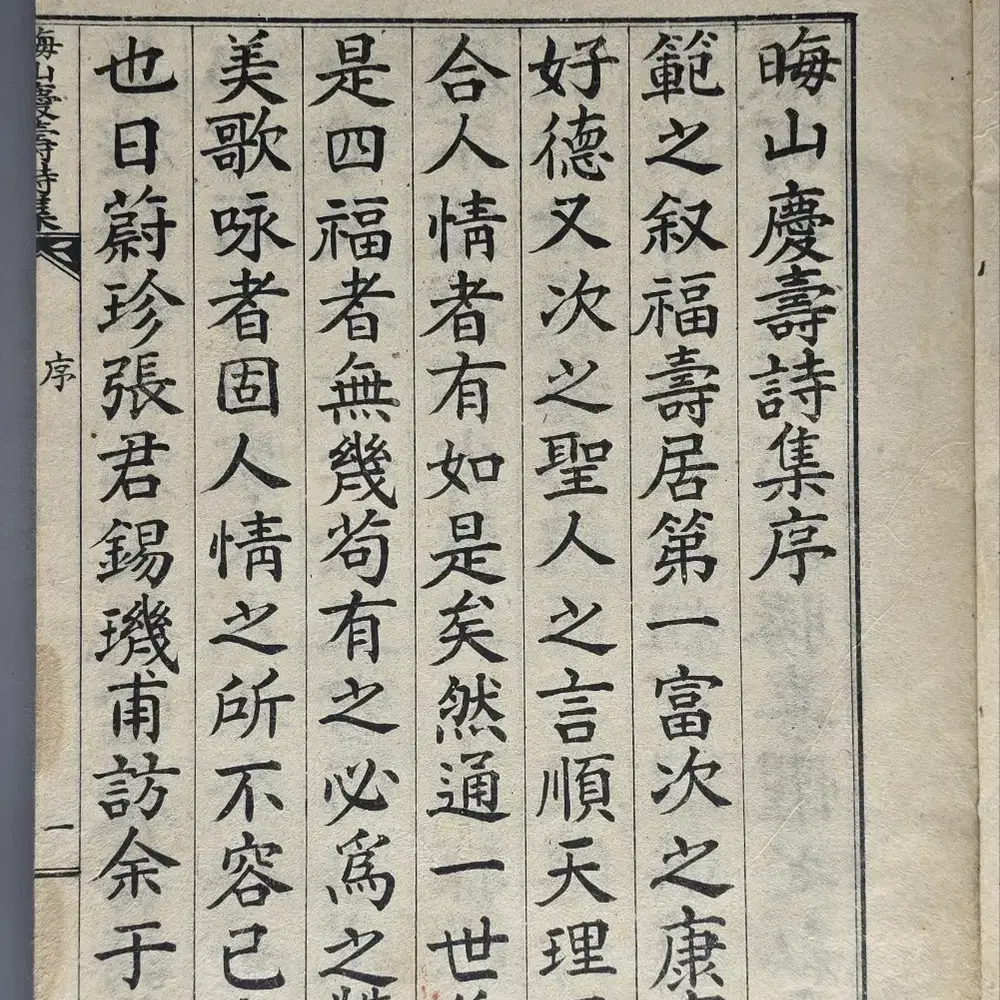 晦山慶壽詩集序
範之叙福壽居第一富次之康
好德又次之聖人之言順天理
合人情者有如是矣然通一世
是四福者無幾苟有之必爲之
美歌咏者固人情之所不容已
也日蔚珍張君錫璣甫訪余于
晦山慶壽詩集
序
一